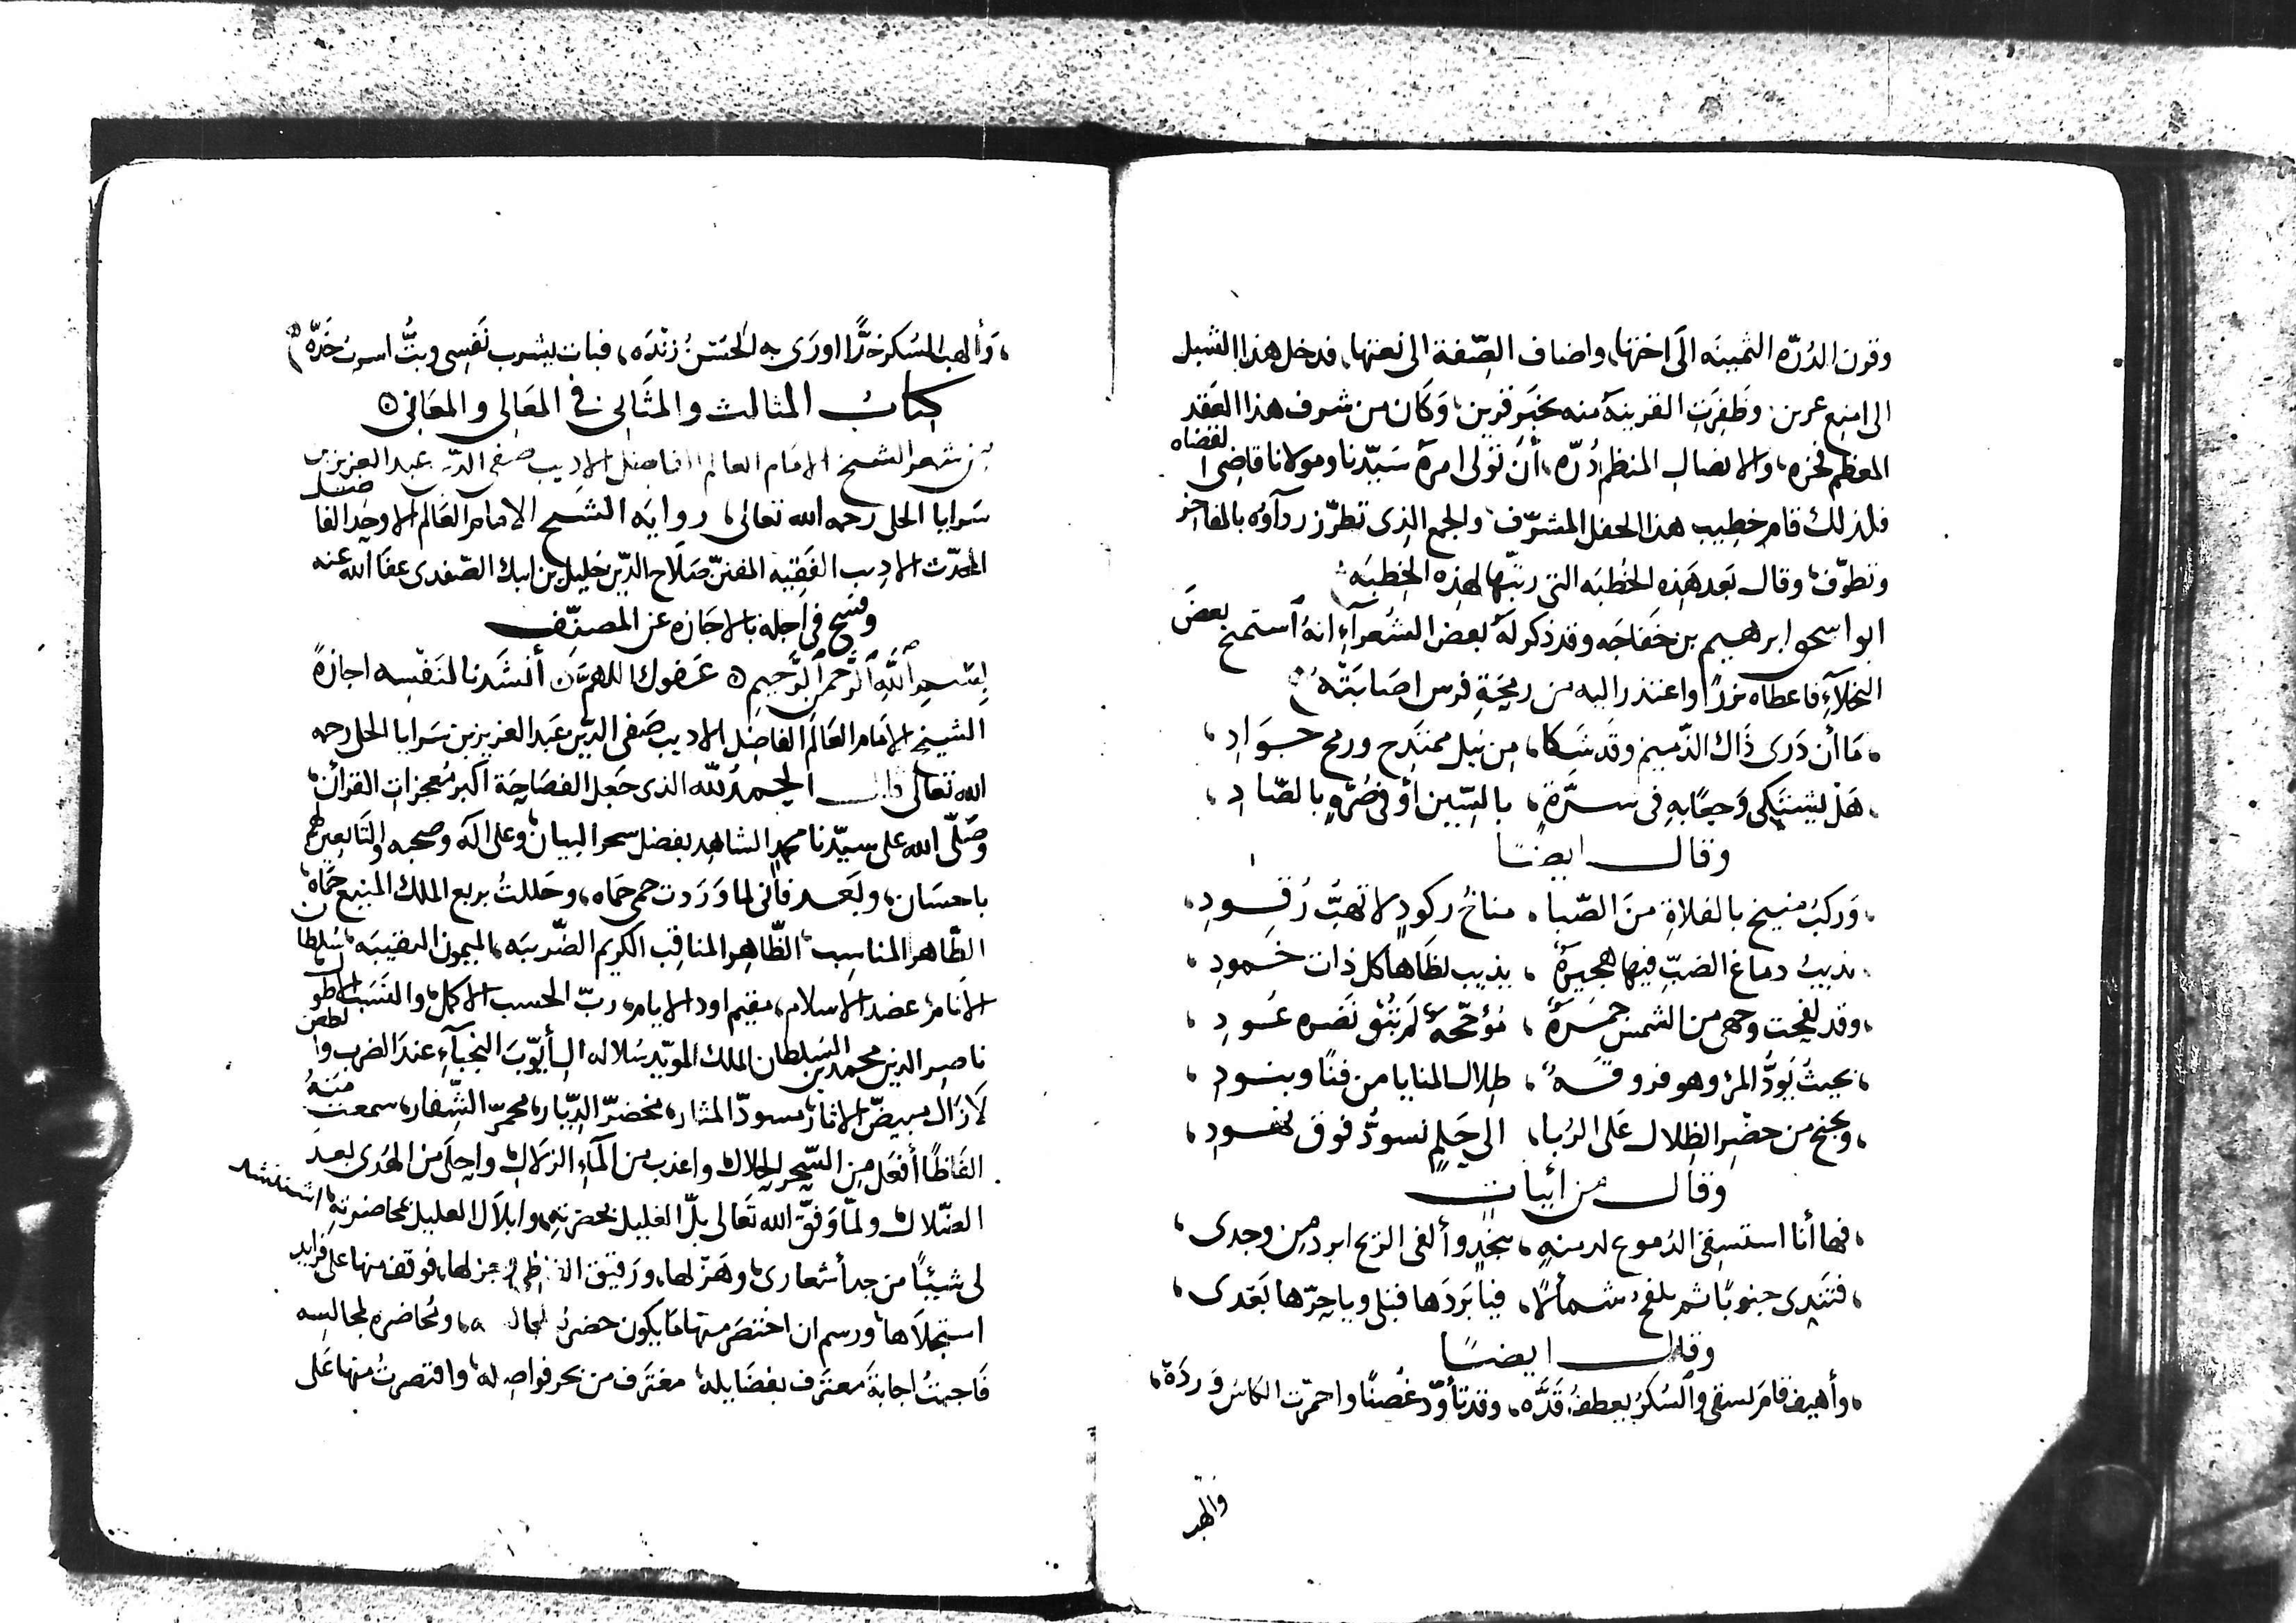 وقرن الدُرّه الثمينه الَى اختها، واضاف الصِّفة الى نعتها، فدخل هذا الشبل
الى امنع عرين، وظَفِرَتِ القرينة منه بخَير قرين، وَكَان من شرف هذا العَقد
المعظم فخره، والاتصال المنظم دُرّه، أنْ تولى امرهُ سَيّدنا ومولانا قاضِى القضاه
فلذلك قام خطيب هذا الحفل المشرّف، والجمع الذى تطرّز ردآؤه بالمفاخر
وتطوّف، وقال بَعد هَذِه الخُطبَه التى رتبّها لهذِه الخِطبَه
ابو اسحق ابرهيم بن خَفاجَه وقد ذكر لَهُ بعض الشُعرآء انهُ استمنح بعضَ
البخلآءِ فاعطاه نزرًا واعتذر اليه من رمْحَةِ فرس اصَابَتْهُ
مَا أن دَرى ذَاك الذّميم وقد شَكا، مِن نيل ممتَدح ورمح جَوَادِ،
هَلْ يشتَكى وَجعًا بهِ فى سُرَّةٍ، بالسِّين أوْ فى صُرَّةٍ بالصّادِ،
وقال ايضًا
وَركبٌ منيخ بالفلاةِ منَ الصّبا، مناخُ ركودٍ لا تهبُّ رُقودِ،
يذيبُ دماغ الضبِّ فيها هجيرةٌ، يذيب لظَاها كل ذات خمودِ،
وقد لفحت وجهى من الشمس جمرَةٌ، مُؤجّجةٌ لم تُبْق نَضره عُودِ،
بحيثُ يَودُّ المرُ وهو فروقَةٌ، ظِلال المنايا من قنًا وبنودِ،
ويجنح من خضْرِ الظِلال عَلى الرُبا، الى حلمٍ تسودُّ فوق نهودِ،
وقال من ابيات
فها أنا استسقى الدُموع لدمنةٍ، بنجْدٍ وألقى الريح ابرد من وجدى،
فتَندى جنوبًا ثم تلفحُ شمألًا، فيا بَردَها قبلى ويا حَرّها بَعْدى،
وقال ايضًا
وأهيف قام يسقى والسُكرُ يعطفُ قَدّه، وقد تأوّد غُصنًا واحمرّت الكاسُ وَردَة،
والهب
وَألهب السُكر خدًّا اورَى به الحُسنُ زندَه، فبات يشرب نَفسِى وبتُّ اشربُ خَدّه
كتابُ المثالث والمثَانى فى المَعَالى والمعَانى
من شعر الشيخ الامام العالم الفاضل الاديب صفى الدين عبد العزيز بن
سَرايا الحلى رحمه الله تعالى، روايَه الشيخ الامام العَالم الاوحد الفاضل
المحدّث الاديب الفَقِيه المفننّ صَلَاح الدّين خليل بن ايبك الصّفدى عفا الله عنه
وفسَح فى اجله بالاجَازه عن المصنّف
بسْمِ اللَّهِ الرَّحمنِ الرَّحِيمِ عَفوك اللهمَّ أنشَدنا لنَفْسِه اجازةً
الشيخ الامَام العَالِم الفاضل الاديب صَفى الدّين عَبد العزيز بن سَرايا الحلى رحمه
الله تعالى قال الحمدُ للّه الذى جَعل الفصَاحَة اكبر مُعجزات القرآن،
وصَلّى الله على سيّدنا محمد الشاهد بفضل سحر البيان، وعلى آله وصحبه والتَابعين لهم
باحسَان، وبَعد فانى لما وَرَدت حمى حمَاه، وحَللتُ بربع الملك المنيع حمَاه،
الطّاهر المناسِب، الظّاهر المناقب الكريم الضّريبَه، الميمون النقيبَه، سُلطان
الأنام، عضد الاسلام، مقيم اود الايام، ربّ الحسب الاكمل، والنسَب الاطول
ناصِر الدين محمد بن السُلطان الملك المويّد سُلاله ال أيّوبَ النُجبآءِ عندَ الضرب والطعن
لَا زَال مبيضّ الاثار، مسودّ المثار، مخضرّ الدِّيار، محمرّ الشِّفار، سمعتُ منهُ
الفَاظًا أفعَل مِن السِّحر الحلال، واعذب من المآءِ الزلَال، واجلَى من الهُدى بعد
الضّلال، ولمّا وَفقّ الله تعَالى بلّ الغليل بحضرته، وابلَال العليل بمحاضرته، استنشد
لى شيئًا من جد أشعارى، وهَزلها، ورَقيق وجزلها، فوقف منها على فرايد
استجلَاها، ورسم ان اختصَر منها مَا يكون حضرةً ومُحاضره لمجالسِه
فَاجبتُ اجابةَ معتَرف بفضَايله، مغترف من بحر فواضِله، واقتصرتُ منها عَلى